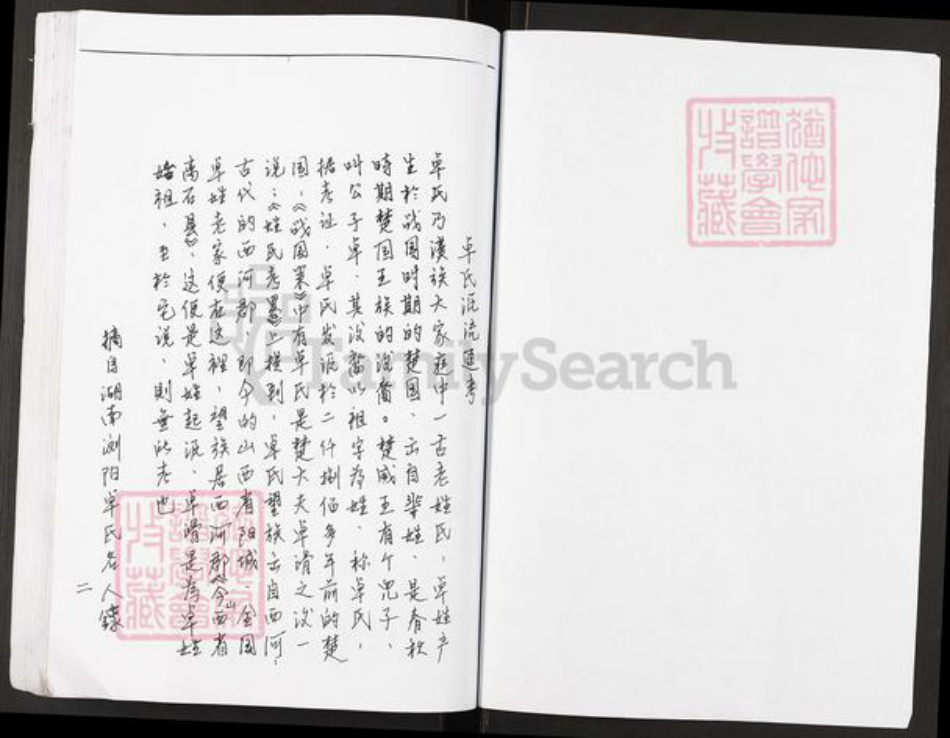 卓氏源流通考
卓氏乃漢族大家庭中一古老姓氏，卓姓产
生於战国时期的楚国、云自芈姓、是春秋
時期楚国王族的後裔。楚威王有个児子、
叫公子卓、其後裔以祖字为姓、称卓氏，
据考证、卓氏发源於二仟捌佰多年前的楚
国，《战国策》中有卓氏是楚大夫卓滑之後一
说；《姓氏考畧》上提到，卓氏望族云自西河，
古代的西河郡、即今的山西省阳城、全国
卓姓老家便在这裡，望族居西河郡《今山西省
离石县》、这便是卓姓起源、卓滑是为卓姓
始祖、至於它说、則無从考也
摘自湖南浏阳卓氏名人錄
二
猶他家
譜學會
收藏
猶他家
譜學會
收藏
FamilySearch